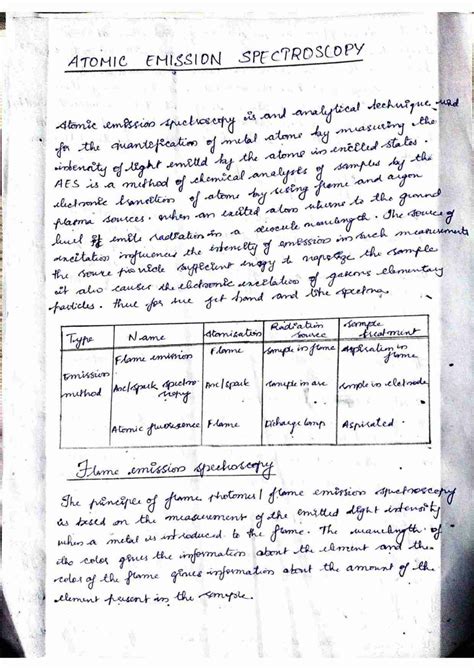 ATOMIC EMISSION SPECTROSCOPY
Atomic emission spectroscopy is and analytical technique used
for the quantification of metal atoms by measuring the
intensity of light emitted by the atoms in excited states.
AES is a method of chemical analysis of samples by the
electronic transition of atoms by using flame and argon
plasma sources. when an excited atom returns to the ground
level it emits radiation in a wavelength. The source of
excitation influences the intensity of emission in such measurements
the source provide sufficient energy to vaporize the sample
it also causes the electronic excitation of gaseous elementary
particles. thus for we get band and line spectra.
Type Name Atomisation Radiation source sample treatment
Emission method Flame emission Flame sample in flame aspiration in flame
Arc/spark spectroscopy Arc/spark sample in arc sample in electrode
Atomic fluorescence Flame Discharge lamp Aspirated
Flame emission spectroscopy
The principle of flame photomer/ flame emission spectroscopy
is based on the measurement of the emitted light intensity
when a metal is introduced to the flame. The wavelength of
the color gives the information about the element and the
color of the flame gives information about the amount of the
element present in the sample.